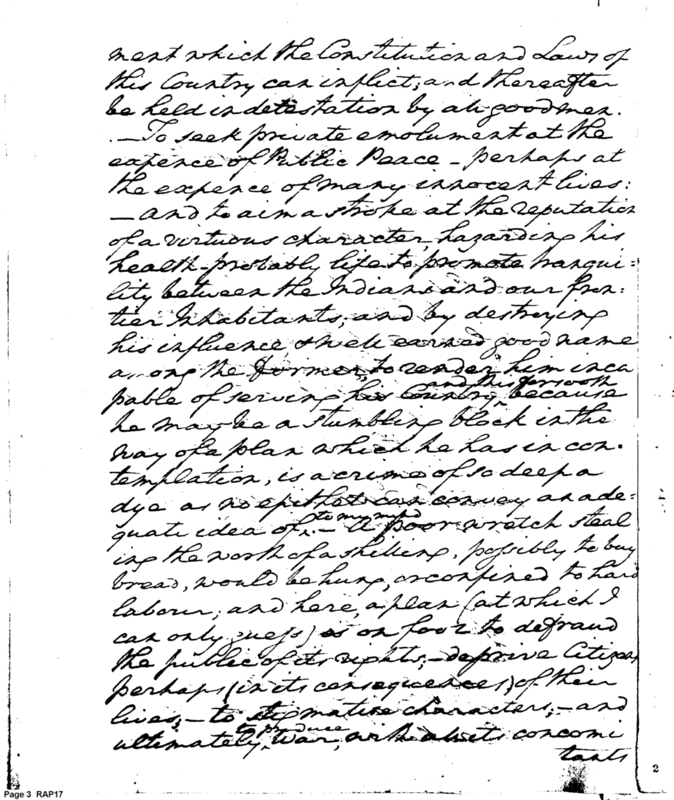 ment which the Constitution and Laws of
this Country can inflict; and thereafter
be held in detestation by all good men.
—To seek private emolument at the
expence of Public Peace – perhaps at
the expence of many innocent lives:
—and to aim a stroke at the reputation
of a virtuous character, hazarding his
health–probably life to promote tranqui:
lity between the Indians and our fron:
tier Inhabitants; and by destroying
his influence & well earned good name
among the former, to render him inca
and this forsooth
pable of serving his Country, because
he may be a stumbling block in the
way of a plan which he has in con:
templation, is a crime of so deep a
dye as no epithet can convey an ade:
to my mind
quate idea of. – A poor wretch steal
ing the worth of a shilling, possibly to buy
bread, would be hung, or confined to hard
labour; and here, a plan (at which I
can only guess) is on foot to defraud
the public of its rights;–deprive Citizens
perhaps (in its consequences) of their
lives;–to stigmatise characters;–and
to produce
ultimately, War, with all its concomi
tants
2
Page 3 RAP17